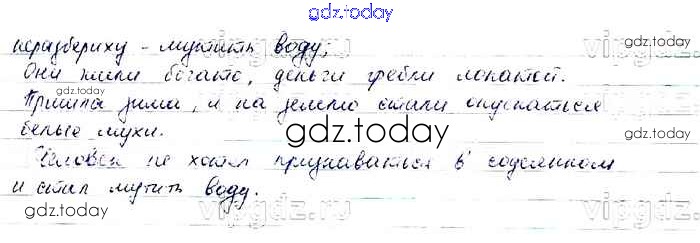 gdz.today
неразбериху - мутить воду;
Они жили богато, деньги гребли лопатой.
Пришла зима, и на землю стали опускаться
белые мухи.
Человек не хотел признаваться в содеянном
и стал мутить воду.
gdz.today
gdz.today
gdz.today
gdz.today